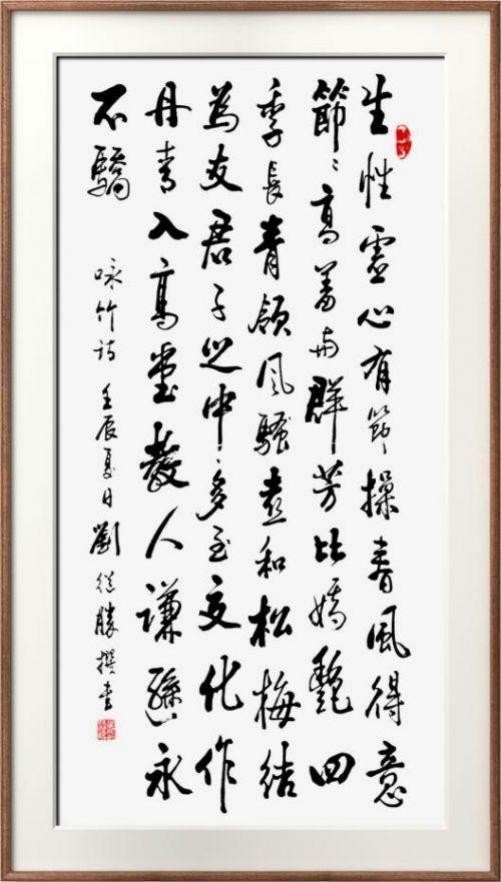 生性虚心有節操春風得意
節々高羞与群芳比嬌艷四
季長青領風騷喜和松梅結
為友君子之中多至交化作
丹青入高堂教人谦遜永
不驕
咏竹诗 壬辰夏日 劉從勝撰書